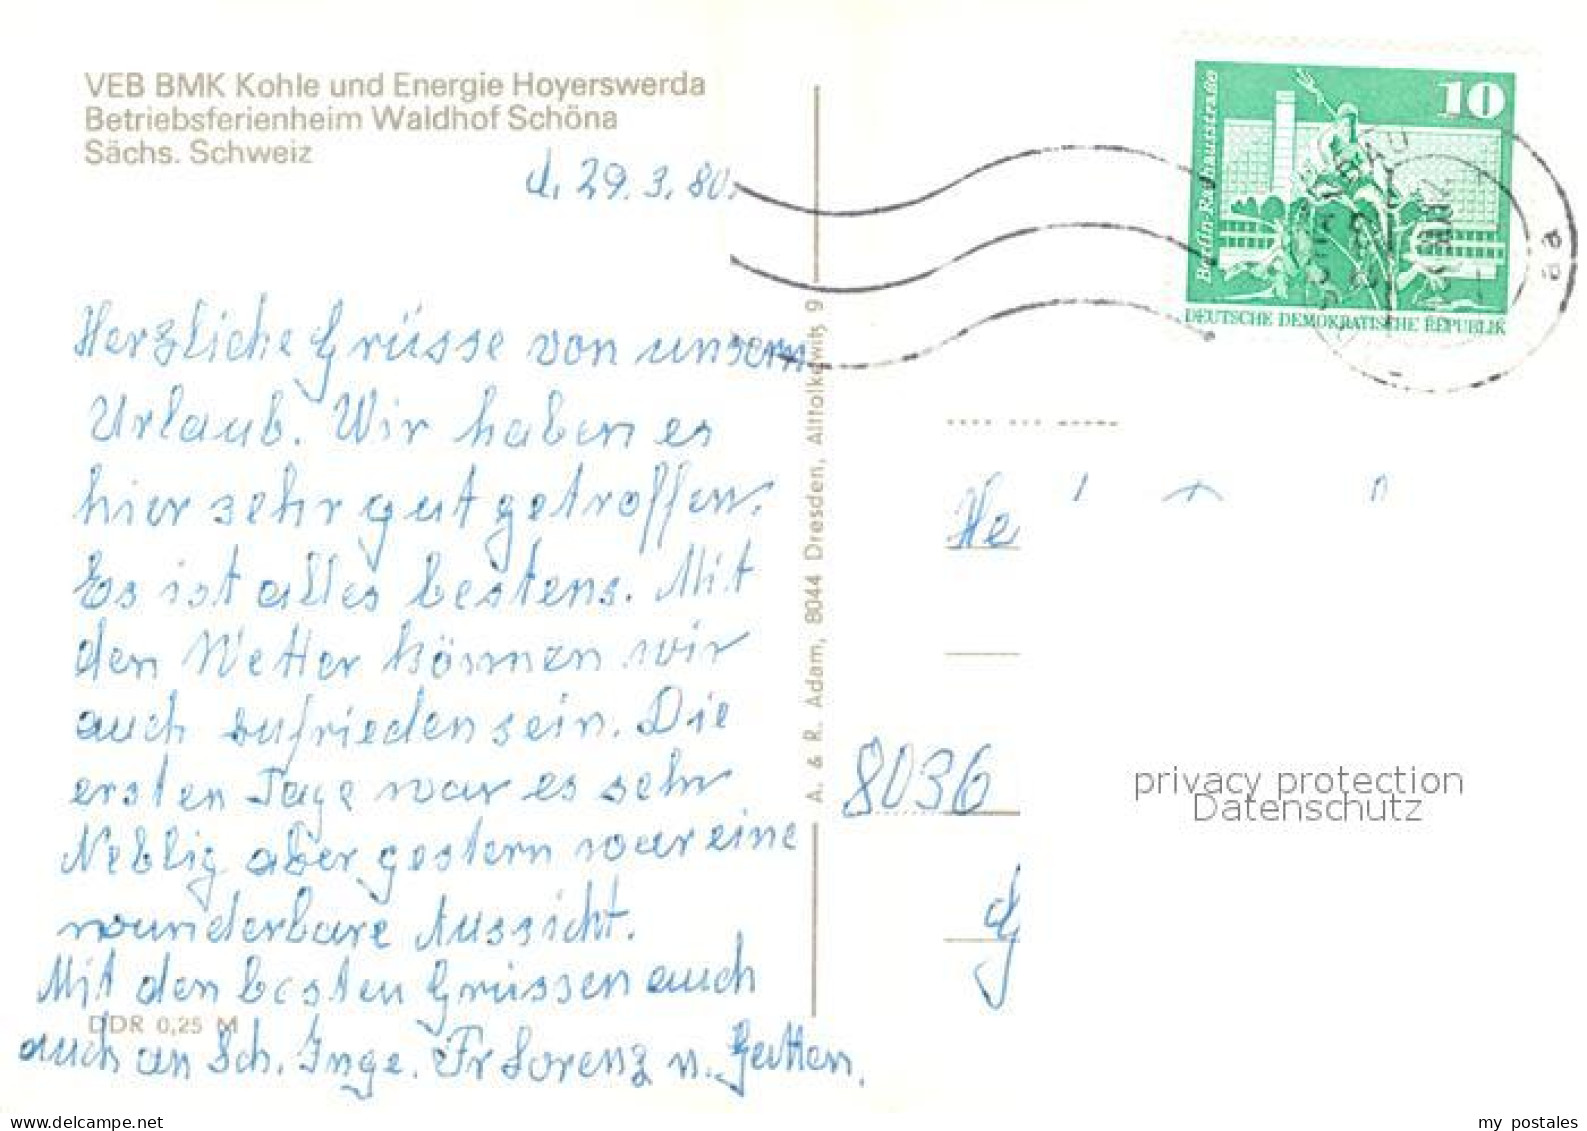 VEB BMK Kohle und Energie Hoyerswerda
Betriebsferienheim Waldhof Schöna
Sächs. Schweiz
d. 29.3.80.
Herzliche Grüsse von unserm
Urlaub. Wir haben es
hier sehr gut getroffen.
Es ist alles bestens. Mit
den Wetter können wir
auch zufrieden sein. Die
ersten Tage war es sehr
Neblig aber gestern war eine
wunderbare Aussicht.
Mit den besten Grüssen auch
auch an Sch. Inge. Fr Lorenz u. Gatten.
DDR 0,25 M
A. & R. Adam, 8044 Dresden, Alttolkewitz 9
10
Berlin-Rathausstraße
DEUTSCHE DEMOKRATISCHE REPUBLIK
aa
He
8036
privacy protection
Datenschutz
my postales